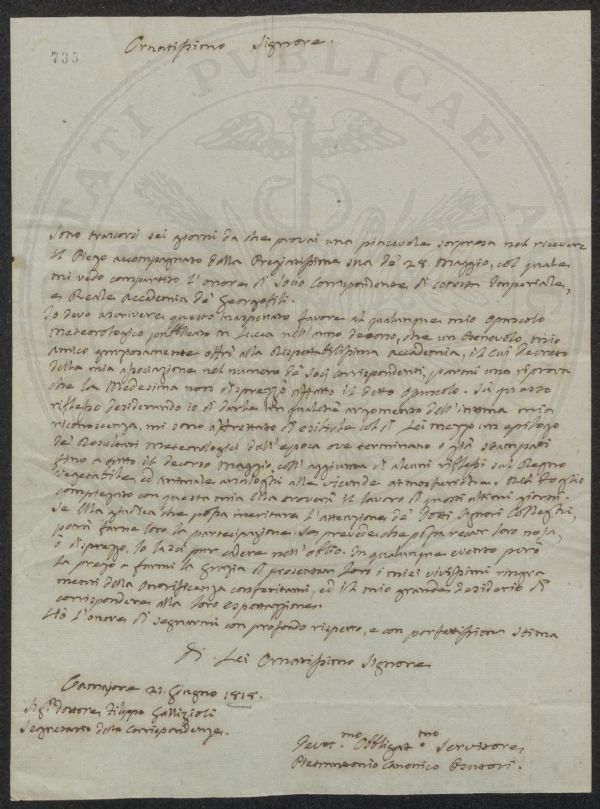 Ornatissimo Signore.
735
TATI PUBLICAE
Sono trascorsi sei giorni da che provai una piacevole sorpresa nel ricevere
il Piego accompagnato dalla Pregiatissima sua de' 28. Maggio, col quale
mi vedo compartito l'onore di Socio Corrispondente di cotesta Imperiale,
e Reale Accademia de' Georgofili.
Io devo ascrivere questo inaspettato favore al qualunque mio opuscolo
Meteorologico pubblicato in Lucca nell'anno decorso, che un Benevolo mio
Amico generosamente offrì alla Rispettabilissima Accademia, il cui decreto
della mia associazione nel numero de' Soci corrispondenti, parmi una riprova
che la Medesima non disprezzò affatto il detto opuscolo. Su questo
riflesso desiderando io di darle un qualche argomento dell'intima mia
riconoscenza, mi sono affrettato di esibirle col di Lei mezzo un epilogo
de' Resultati Meteorologici dall'epoca ove terminano i già stampati
fino a tutto il decorso Maggio, coll'aggiunta di alcuni riflessi sul Regno
Vegetabile, ed Animale analoghi alle vicende atmosferiche. Nel Foglio
compiegato con questa mia Ella troverà il lavoro di questi ultimi giorni.
Se Ella giudica che possa meritare l'attenzione de' Dotti Signori Colleghi,
potrà farne loro la partecipazione. Se prevede che possa recar loro noja,
o disprezzo, lo lasci pur cadere nell'oblio. In qualunque evento però
La prego a farmi la grazia di presentar loro i miei vivissimi ringra
menti della Onorificenza conferitami, ed il mio grande desiderio di
corrispondere alla loro espettazione.
Ho l'onore di segnarmi con profondo rispetto, e con perfettissima stima
Di Lei Ornatissimo Signore
Camajore 21. Giugno 1818.
Sig.r Dottore Filippo Gallizioli
Segretario delle Corrispondenze.
Devot.mo Obbligat.mo Servitore
Pietrantonio Canonico Butori.